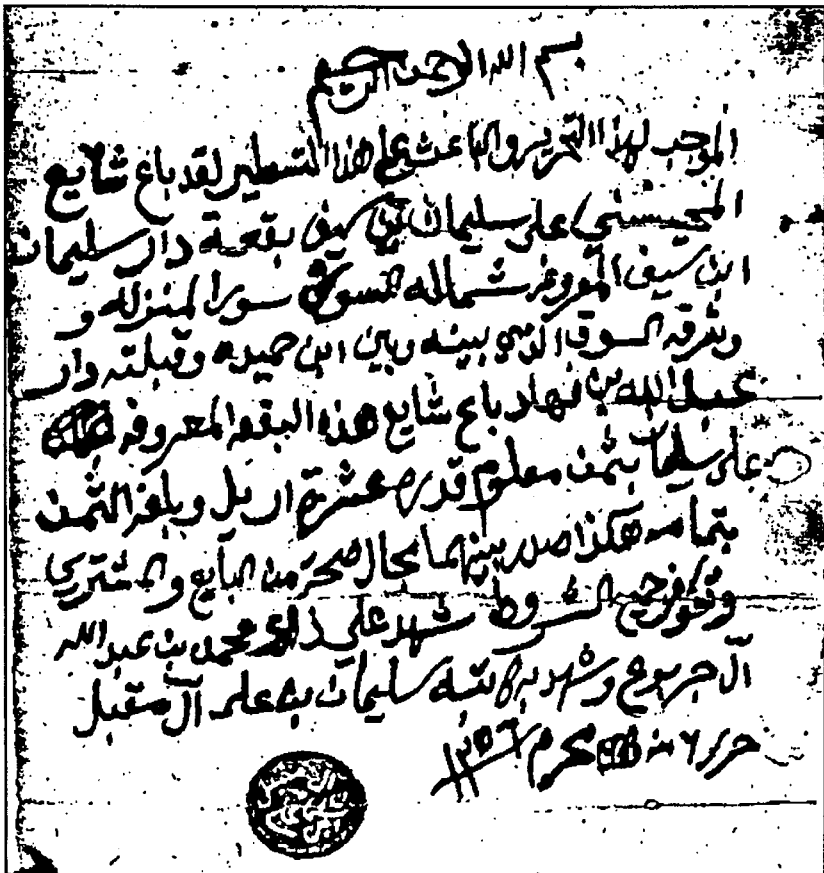 بسم الله الرحمن الرحيم
الموجب لهذا التحرير والباعث على هذا التسطير لقد باع شايع
المحيسني على سليمان بن سيف بقعة دار سليمان
ابن سيف المعروفه شماله السور سور المنزله و
وشرقه السوق الذي بينه وبين ابن حميده وقبلته دار
عبد الله بن فهاد باع شايع هذه البقعه المعروفه
على سليمان بثمن معلوم قدره عشرة اريل وبلغه الثمن
بتمامه هكذا صدر بينهما بحال صحة من البايع والمشتري
وتوافر جميع الشروط شهد على ذلك محمد بن عبد الله
ال جربوع وشهد به كاتبه سليمان بن علي آل مقبل
حرر ٦ من محرم